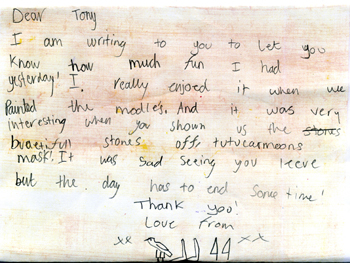 Dear Tony
I am writing to you to let you
know how much fun I had
yesterday! I really enjoied it when we
Painted the modles. And it was very
interesting when you shown us the stones
bueatifull stones off tutucarmoons
mask! It was sad seeing you leeve
but the day has to end some time!
Thank you!
Love From
xx xx